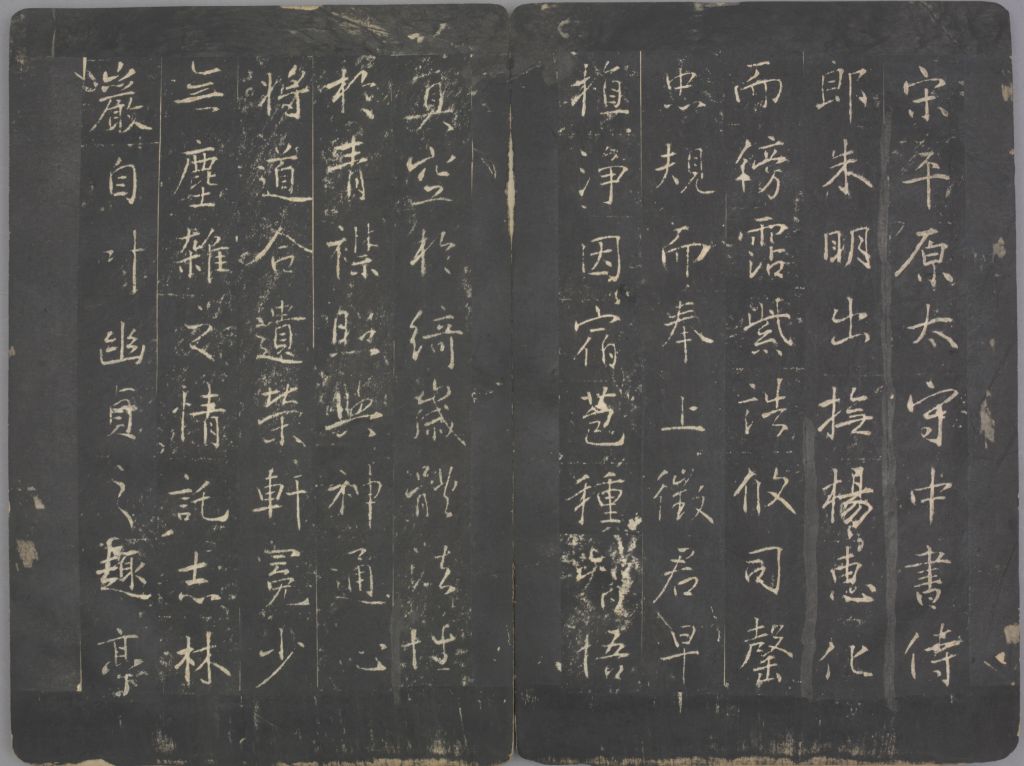 宋平原太守中書侍
郎朱明出撫楊惠化
而傍霑紫誥攸司罄
忠規而奉上徵君早
植淨因宿苞種智悟
真空於綺歲體法性
於青襟照與神通心
將道合遺榮軒冕少
無塵雜之情託志林
巖自叶幽貞之趣亭